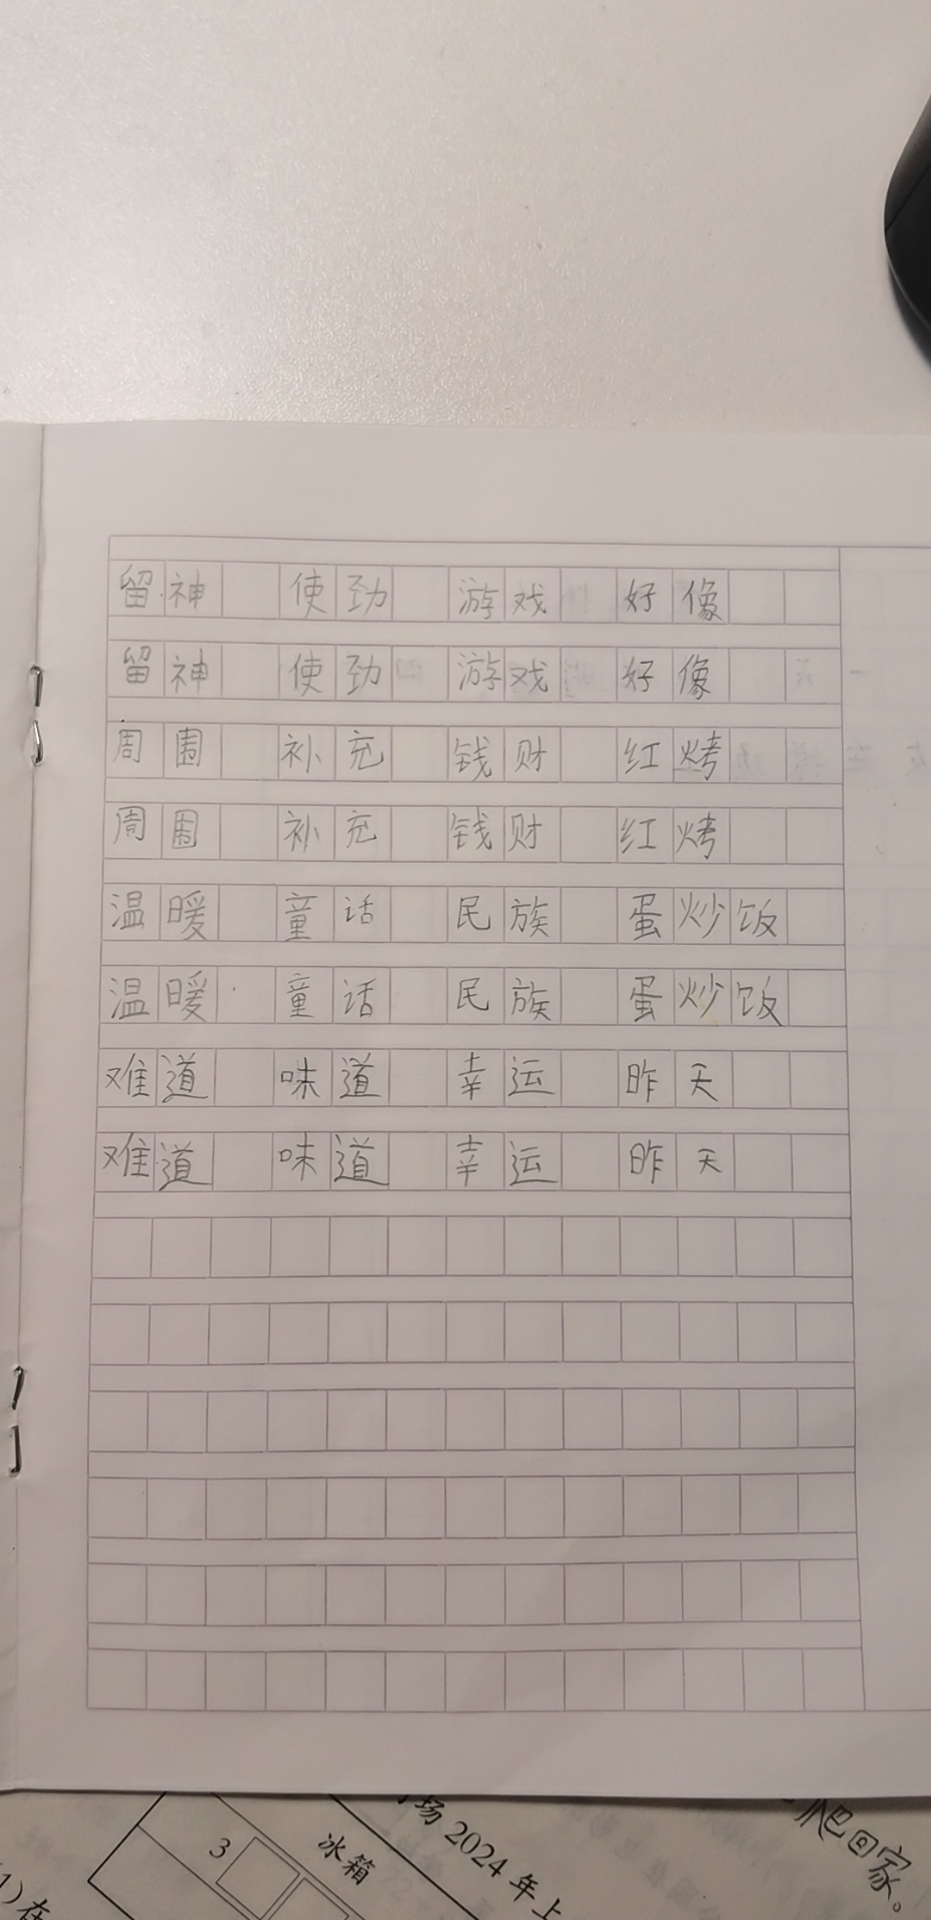 留神 使劲 游戏 好像
留神 使劲 游戏 好像
周围 补充 钱财 红烤
周围 补充 钱财 红烤
温暖 童话 民族 蛋炒饭
温暖 童话 民族 蛋炒饭
难道 味道 幸运 昨天
难道 味道 幸运 昨天
3 冰箱
场 2024 年上
爬回家。
1)在